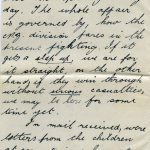 day. The whole affair
is governed by how the
N.Z. division fares in the
present fighting. If it
gets a step up, we are for
it straight, on the other
hand, if they win through
without serious casualties
we may be here for some
time yet.
I'm most relieved, were
letters from the children